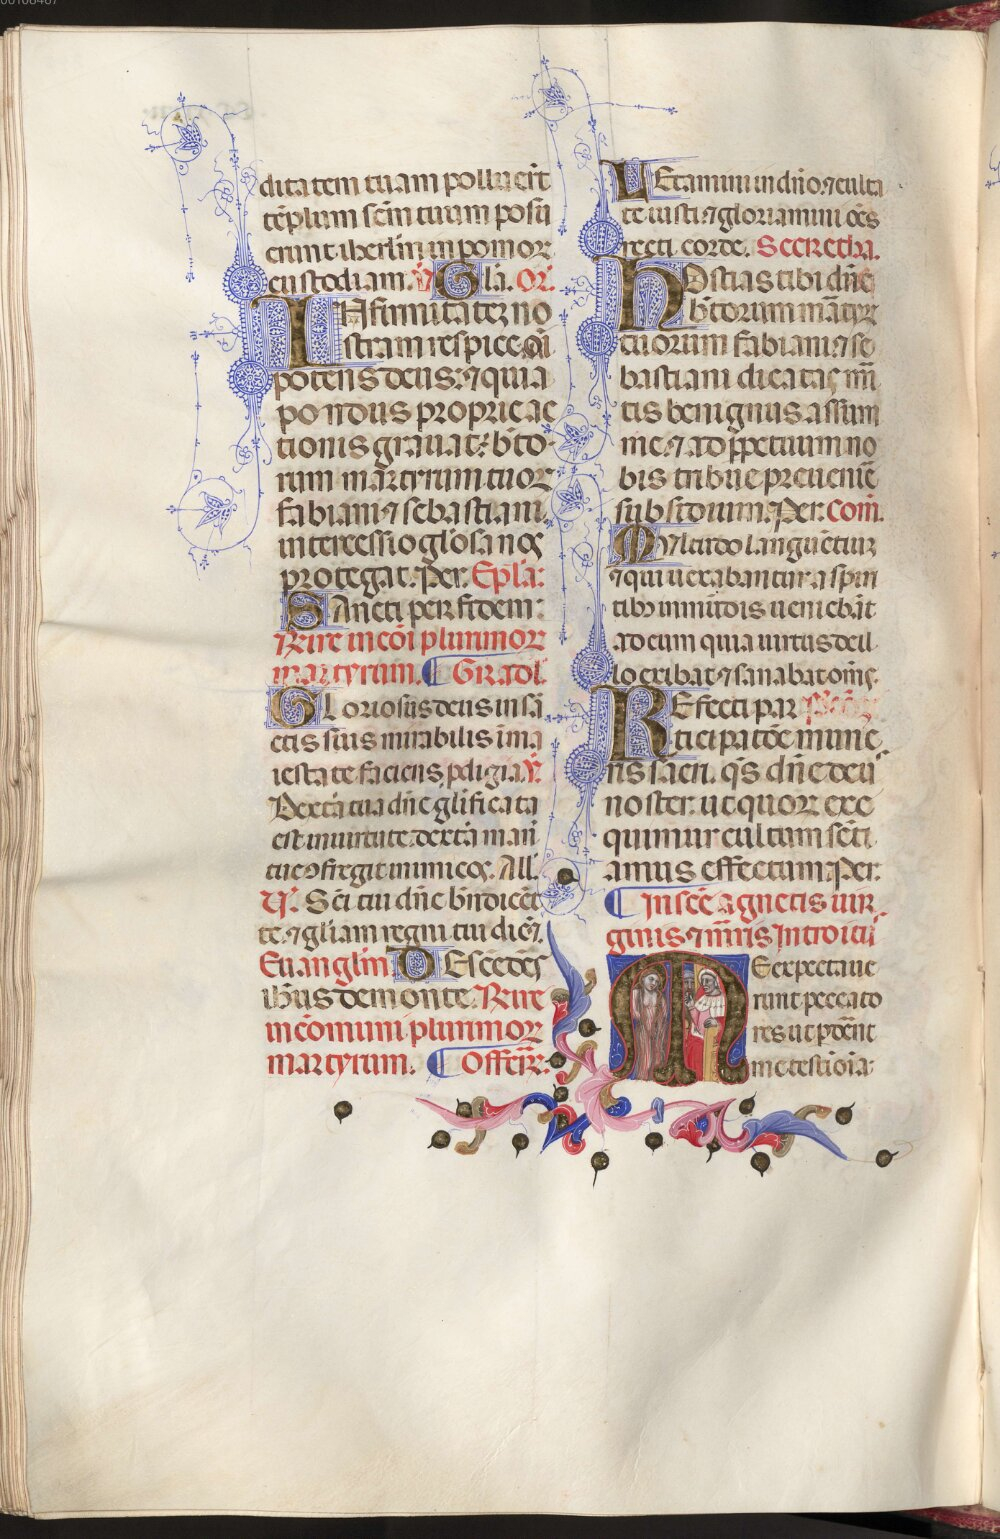 00108467
ditatem tuam polluert̄
tēplum sc̄m tuum posu
erunt iherlm̄ in pomoꝝ
custodiam. ℣ Gła. Or̄.
INfirmitatēz no
stram respice oī
potens deus: ⁊ quia
pondus proprie ac
tionis grauat: bt̄o
rum martyrum tuoꝝ
fabiani ⁊ sebastiani.
intercessio głosa nos
protegat. Per. Epła:
SAncti per fidem:
Rr̄e in cōi plurimoꝝ
martyrum. ¶ Gradał
GLoriosus deus in sā
ctis suis mirabilis ī ma
iestate faciens pdigia. ℣.
Dextā tua dn̄e głificata
est in uirtute. dextā man̄
tua ꝯfregit inimicos. Ałł.
℣. Sc̄i tui dn̄e bn̄dicēt
te. ⁊ głiam regni tui dicēt.
Euangłm. DEscēdēs
ih̄us de monte. Rr̄e
in cōmuni plurimoꝝ
martyrum. ¶ Offerr̄:
LEtamini in dn̄o ⁊ exulta
te iusti ⁊ gloriamini oēs
recti corde. Secretha.
HOstias tibi dn̄e
bt̄orum mār̄tyꝝ
tuorum fabiani ⁊ se
bastiani dicatas mū
tis benignus assum
me. ⁊ ad ꝑpetuum no
bis tribue preuenire
subsidium. Per. Com̄.
Multitudo languētium
⁊ qui uexabantur a spiri
tibꝫ inmūdis ueniebāt
ad eum quia uirtus de il
lo exibat ⁊ sanabat om̄s.
REfecti par
ticipatōe mune
ris sacri. qs̄ dn̄e deus
noster. ut quoꝝ exe
quimur cultum senti
amus effectum. Per.
¶ In scē agnetis uir
ginis ⁊ mr̄is Introitū
ME expectaue
runt peccato
res ut pdēnt
me testiōia